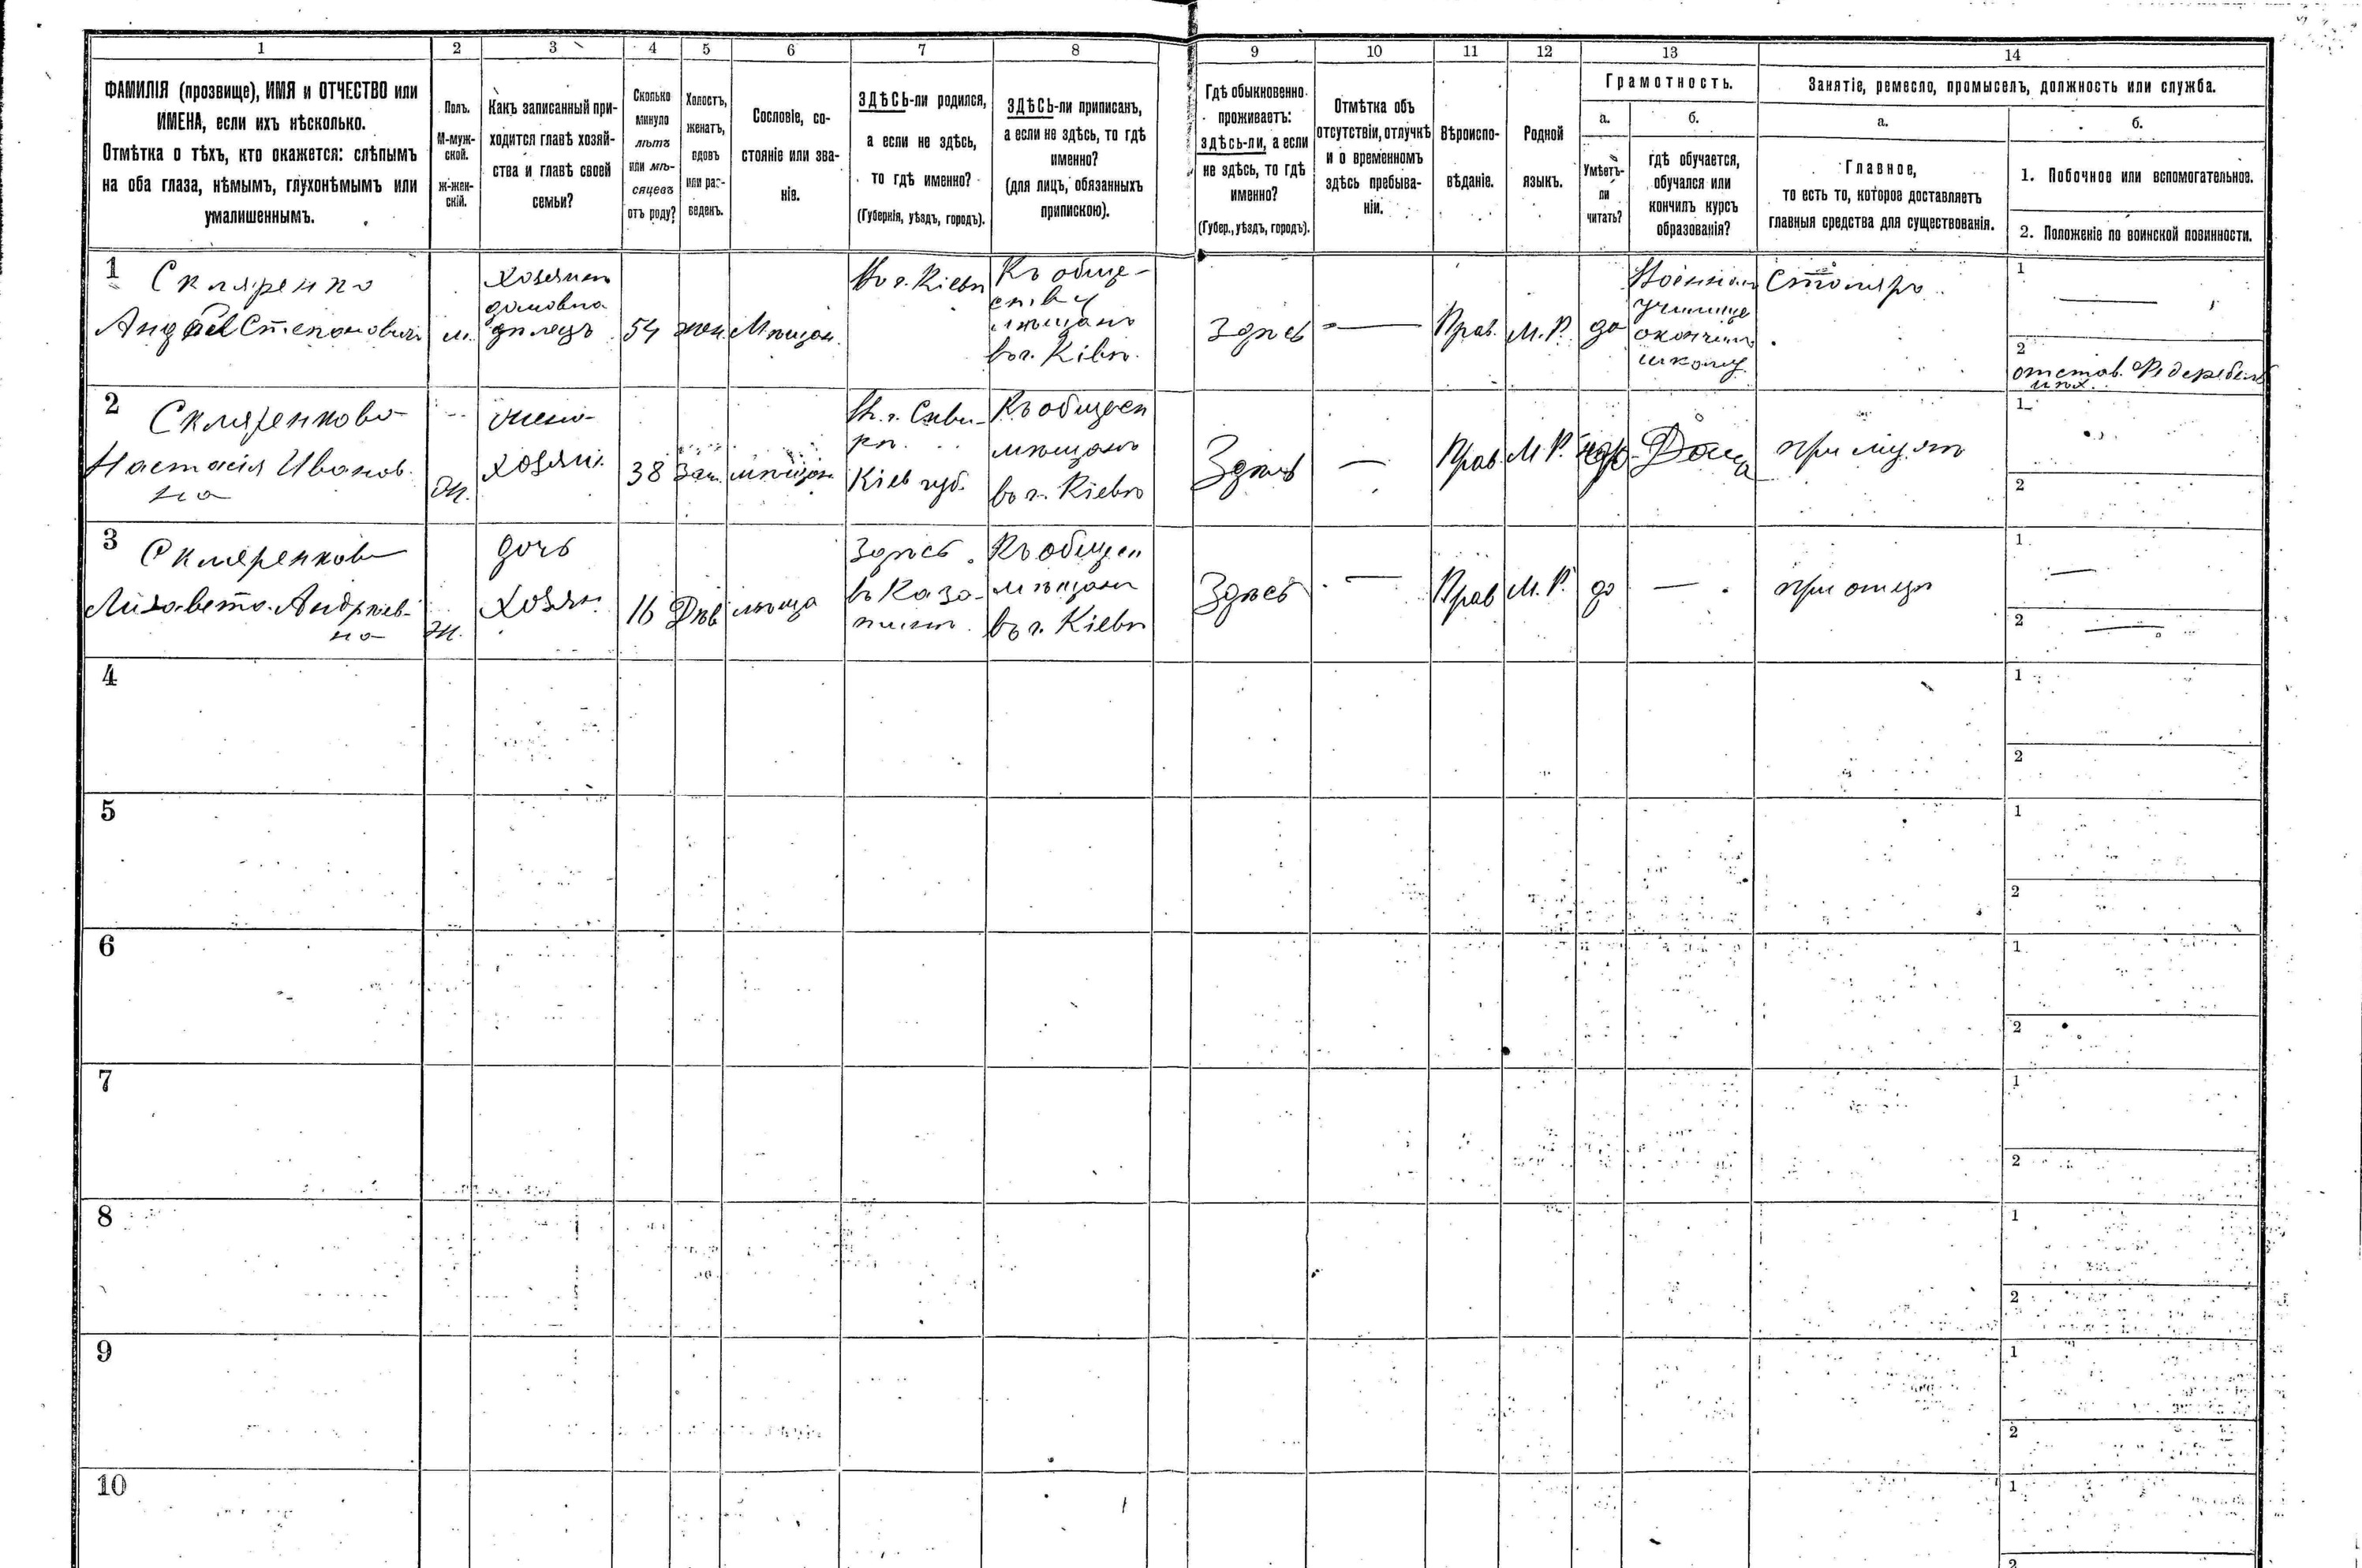 1
2
3
4
5
6
7
8
9
10
11
12
13
14
ФАМИЛІЯ (прозвище), ИМЯ и ОТЧЕСТВО или
ИМЕНА, если ихъ нѣсколько.
Отмѣтка о тѣхъ, кто окажется: слѣпымъ
на оба глаза, нѣмымъ, глухонѣмымъ или
умалишеннымъ.
Полъ.
М-муж-
ской.
Ж-жен-
скій.
Какъ записанный при-
ходится главѣ хозяй-
ства и главѣ своей
семьи?
Сколько
минуло
лѣтъ
или мѣ-
сяцевъ
отъ роду?
Холостъ,
женатъ,
вдовъ
или раз-
веденъ.
Сословіе, со-
стояніе или зва-
ніе.
ЗДѢСЬ-ли родился,
а если не здѣсь,
то гдѣ именно?
(Губернія, уѣздъ, городъ).
ЗДѢСЬ-ли приписанъ,
а если не здѣсь, то гдѣ
именно?
(для лицъ, обязанныхъ
припискою).
Гдѣ обыкновенно
проживаетъ:
здѣсь-ли, а если
не здѣсь, то гдѣ
именно?
(Губер., уѣздъ, городъ).
Отмѣтка объ
отсутствіи, отлучкѣ
и о временномъ
здѣсь пребыва-
ніи.
Вѣроиспо-
вѣданіе.
Родной
языкъ.
Грамотность.
а.
Умѣетъ-
ли
читать?
б.
гдѣ обучается,
обучался или
кончилъ курсъ
образованія?
Занятіе, ремесло, промыселъ, должность или служба.
а.
Главное,
то есть то, которое доставляетъ
главныя средства для существованія.
б.
1. Побочное или вспомогательное.
2. Положеніе по воинской повинности.
1
Скляренко
Андрей Степановичъ
м.
хозяинъ
домовла
дѣлецъ
54
жен.
Мѣщан.
Въ г. Кіевѣ
Къ обще-
ству
мѣщанъ
въ г. Кіевѣ.
Здѣсь
—
Прав.
М. Р.
да
училище
окончилъ
школу
Столяръ
1
—
2
отстав.
2
Скляренкова
Настасія Иванов
на
ж.
жена
хозяи.
38
Зам.
мѣщан
Въ г. Скви-
рѣ
Кіев губ.
Къ общест
мѣщанъ
въ г. Кіевѣ
Здѣсь
—
Прав.
М. Р.
Дома
при мужѣ
1
2
3
Скляренкова
Лизавета Андрѣев-
на
ж.
дочь
хозяи.
16
Дѣв
мѣща
Здѣсь
Къ общест
мѣщан
въ г. Кіевѣ
Здѣсь
—
Прав
М. Р.
да
—
при отцѣ
1
—
2
—
4
1
2
5
1
2
6
1
2
7
1
2
8
1
2
9
1
2
10
1
2